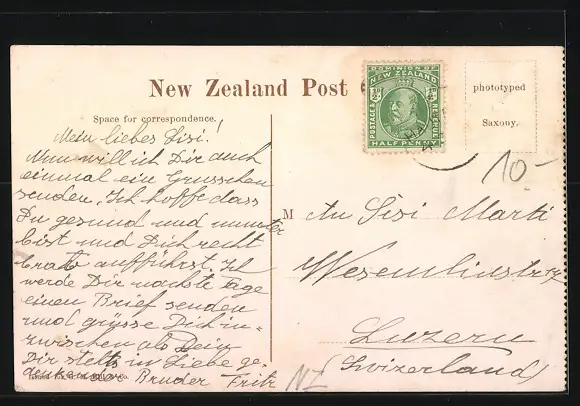 New Zealand Post
DOMINION OF
NEW ZEALAND
½D
½D
POSTAGE &
REVENUE
HALF PENNY
phototyped
Saxony.
10-
Space for correspondence.
Mein liebes Sisi!
Nun will ich Dir auch
einmal ein Grusschen
senden. Ich hoffe dass
Du gesund und munter
bist und Dich recht
brav aufführst. Ich
werde Dir nächste Tage
einen Brief senden
und grüsse Dich in-
zwischen als Dein
Dir stets in Liebe ge-
denkender Bruder Fritz
M
An Sisi Marti
Luzern
(Switzerland)
NZ